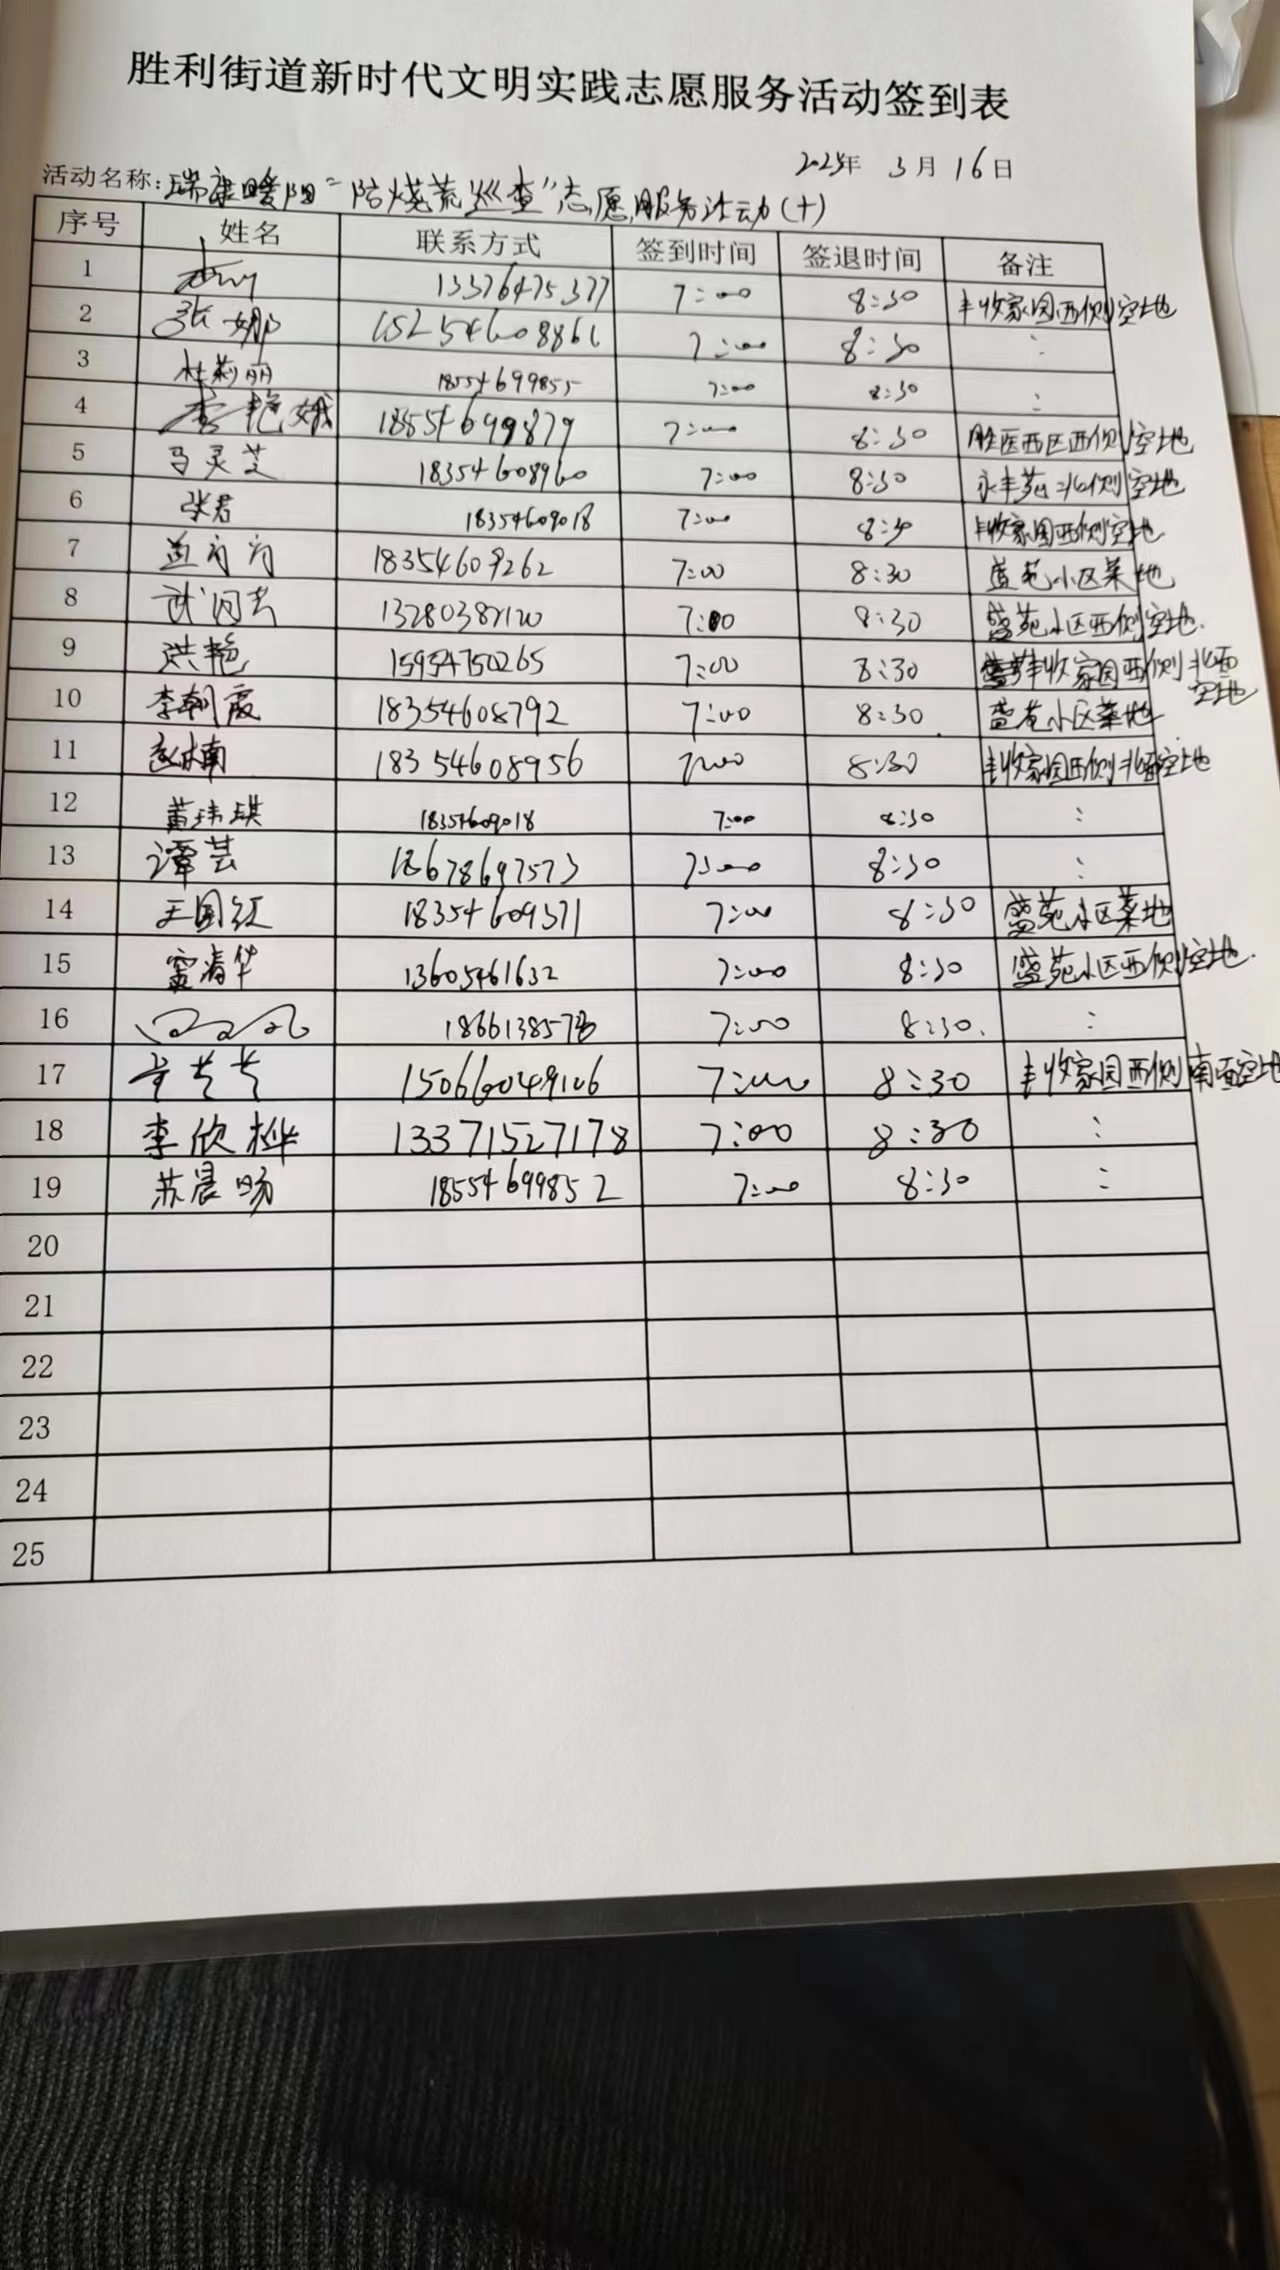 胜利街道新时代文明实践志愿服务活动签到表
2025年 3月16日
活动名称:瑞康暖阳"防烧荒巡查"志愿服务活动(十)
序号 姓名 联系方式 签到时间 签退时间 备注
1 13376475377 7:00 8:30 丰收家园西侧空地
2 张娜 15254608861 7:00 8:30 :
3 杜莉丽 18554699855 7:00 8:30 :
4 李艳娥 18554699879 7:00 8:30 胜医西区西侧空地
5 马灵芝 18354608960 7:00 8:30 永丰苑北侧空地
6 张君 18354609018 7:00 8:30 丰收家园西侧空地
7 18354609262 7:00 8:30 盛苑小区菜地
8 7:00 8:30 盛苑小区西侧空地.
9 洪艳 15954750265 7:00 8:30 丰收家园西侧北面空地
10 李朝霞 18354608792 7:00 8:30 盛苑小区菜地
11 赵楠 18354608956 7:00 8:30 丰收家园西侧北面空地
12 黄玮琪 18354609018 7:00 8:30 :
13 谭芸 18678697573 7:00 8:30 :
14 王国红 18354609371 7:00 8:30 盛苑小区菜地
15 窦清华 13605461632 7:00 8:30 盛苑小区西侧空地.
16 7:00 8:30. :
17 7:00 8:30 丰收家园西侧南面空地
18 李欣桦 13371527178 7:00 8:30 :
19 苏晨旸 18554699852 7:00 8:30 :
20
21
22
23
24
25